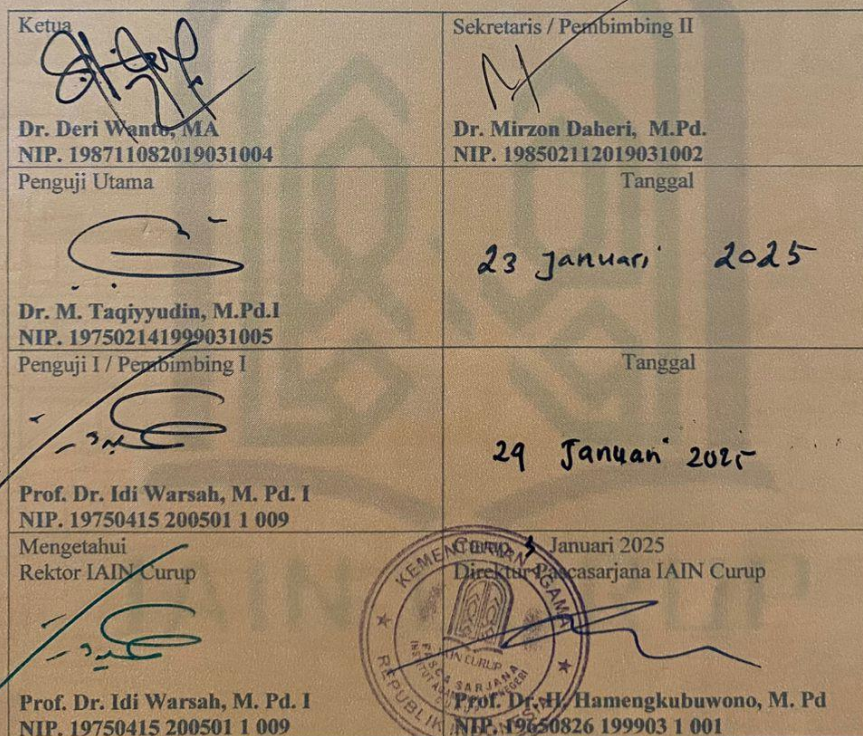 Ketua
Dr. Deri Wanto, MA
NIP. 198711082019031004
Sekretaris / Pembimbing II
Dr. Mirzon Daheri, M.Pd.
NIP. 198502112019031002
Penguji Utama
Dr. M. Taqiyyudin, M.Pd.I
NIP. 197502141999031005
Tanggal
23 Januari 2025
Penguji I / Pembimbing I
Prof. Dr. Idi Warsah, M. Pd. I
NIP. 19750415 200501 1 009
Tanggal
29 Januari 2025
Mengetahui
Rektor IAIN Curup
Prof. Dr. Idi Warsah, M. Pd. I
NIP. 19750415 200501 1 009
Curup, Januari 2025
Direktur Pascasarjana IAIN Curup
Prof. Dr. H. Hamengkubuwono, M. Pd
NIP. 19650826 199903 1 001
KEMENTERIAN AGAMA
REPUBLIK INDONESIA
IAIN CURUP
PASCASARJANA
INSTITUT AGAMA ISLAM NEGERI